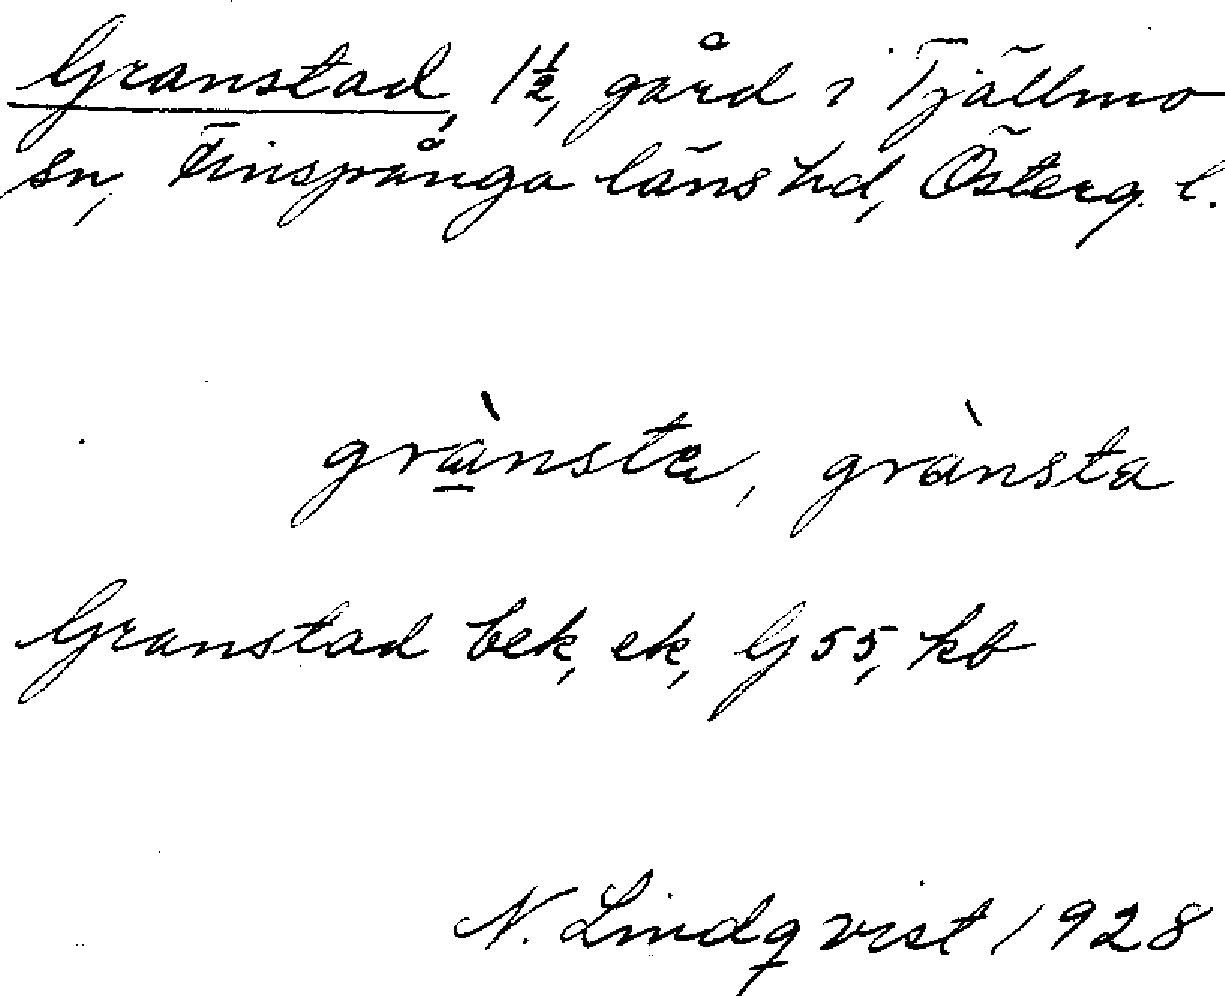 Granstad, 1½, gård i Tjällmo
sn, Finspånga läns hd, Österg. l.
grà̱nsta, grànsta
Granstad bek, ek, G 55, kb
N. Lindqvist 1928